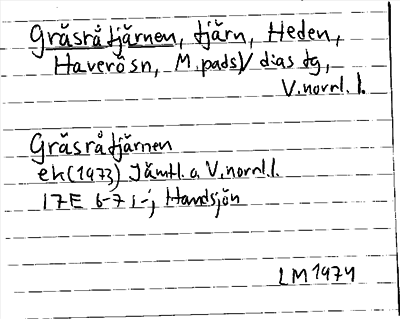 Gräsråtjärnen, tjärn, Heden,
Haverö sn, M.pads V dias tg,
V.norrl. l.
Gräsråtjärnen
ek (1973) Jämtl. o V.norrl.l.
17E 6-7 i-j Handsjön
LM 1974